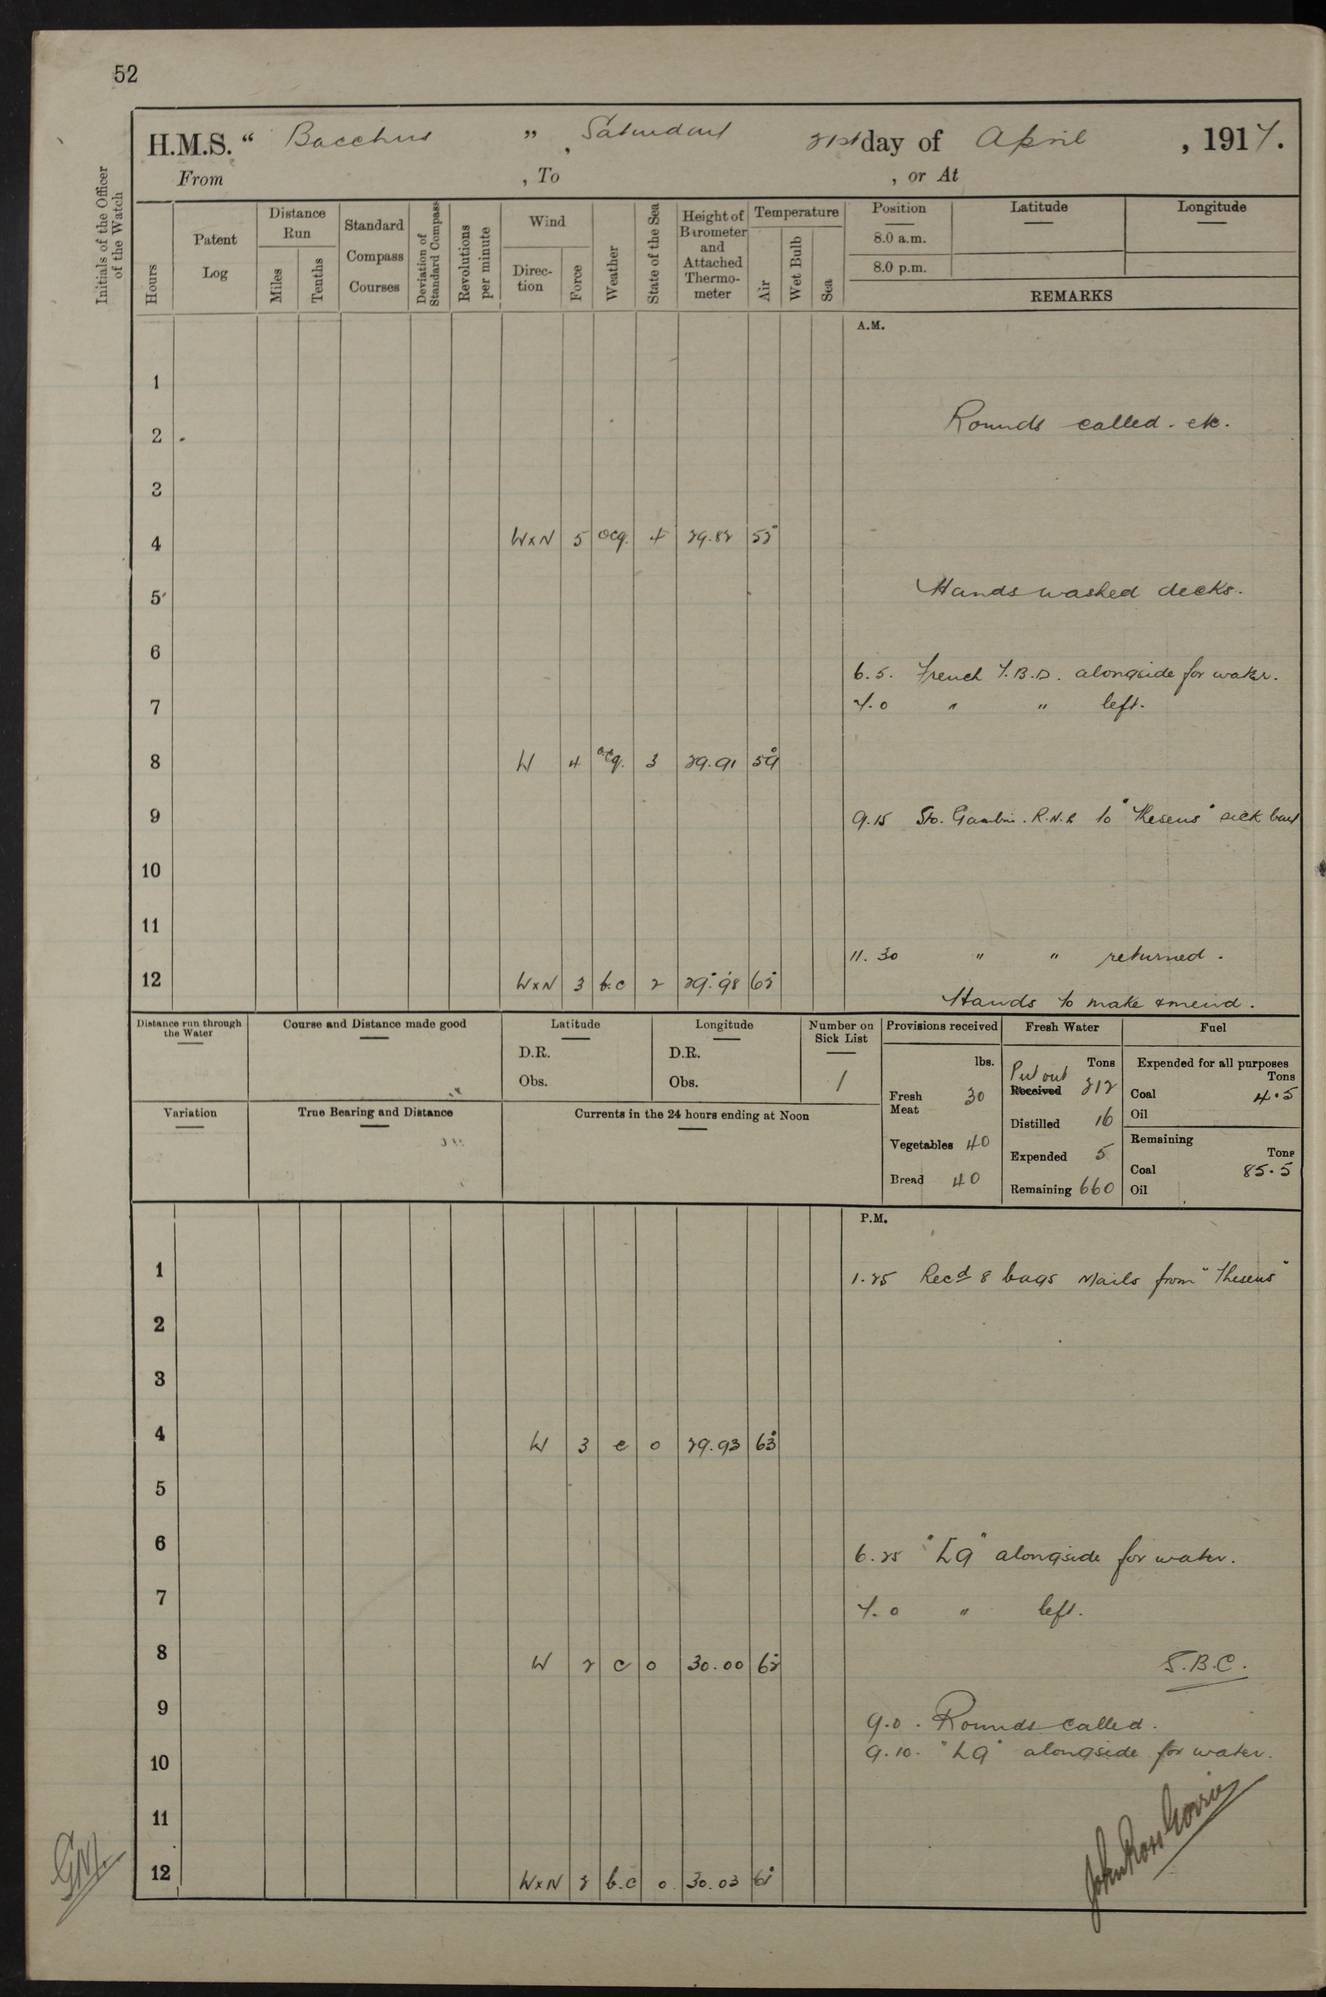 52
H.M.S. " Bacchus " , Saturday 21st day of April , 1917.
From , To , or At
Initials of the Officer of the Watch
Hours
Patent Log
Distance Run
Miles
Tenths
Standard Compass Courses
Deviation of Standard Compass
Revolutions per minute
Wind
Direc-tion
Force
Weather
State of the Sea
Height of Barometer and Attached Thermo-meter
Temperature
Air
Wet Bulb
Sea
Position
8.0 a.m.
8.0 p.m.
Latitude
Longitude
REMARKS
A.M.
1
2 Rounds called. etc.
3
4 WxN 5 ocq. 4 29.82 55°
5 Hands washed decks.
6
6.5. French T.B.D. alongside for water.
7 7.0 " " left.
8 W 4 ocq. 3 29.91 59°
9 9.15 Sto. R.N.R to "Theseus" sick bay
10
11
11.30 " " returned.
12 WxN 3 b.c 2 29.98 62°
Hands to make & mend.
Distance run through the Water
Course and Distance made good
Latitude
D.R.
Obs.
Longitude
D.R.
Obs.
Number on Sick List
1
Provisions received
lbs.
Fresh Meat 30
Vegetables 40
Bread 40
Fresh Water
Tons
Put out
Received 212
Distilled 16
Expended 5
Remaining 660
Fuel
Expended for all purposes
Tons
Coal 4.5
Oil
Remaining
Tons
Coal 85.5
Oil
Variation
True Bearing and Distance
Currents in the 24 hours ending at Noon
P.M.
1 1.25 Recd 8 bags Mails from "Theseus"
2
3
4 W 3 c 0 29.93 63°
5
6 6.25 "L9" alongside for water.
7 7.0 " left.
8 W 2 c 0 30.00 62°
S.B.C.
9 9.0. Rounds called.
9.10. "L9" alongside for water.
10
11
12 WxN 2 b.c 0 30.03 61°
John Ross Gorrie